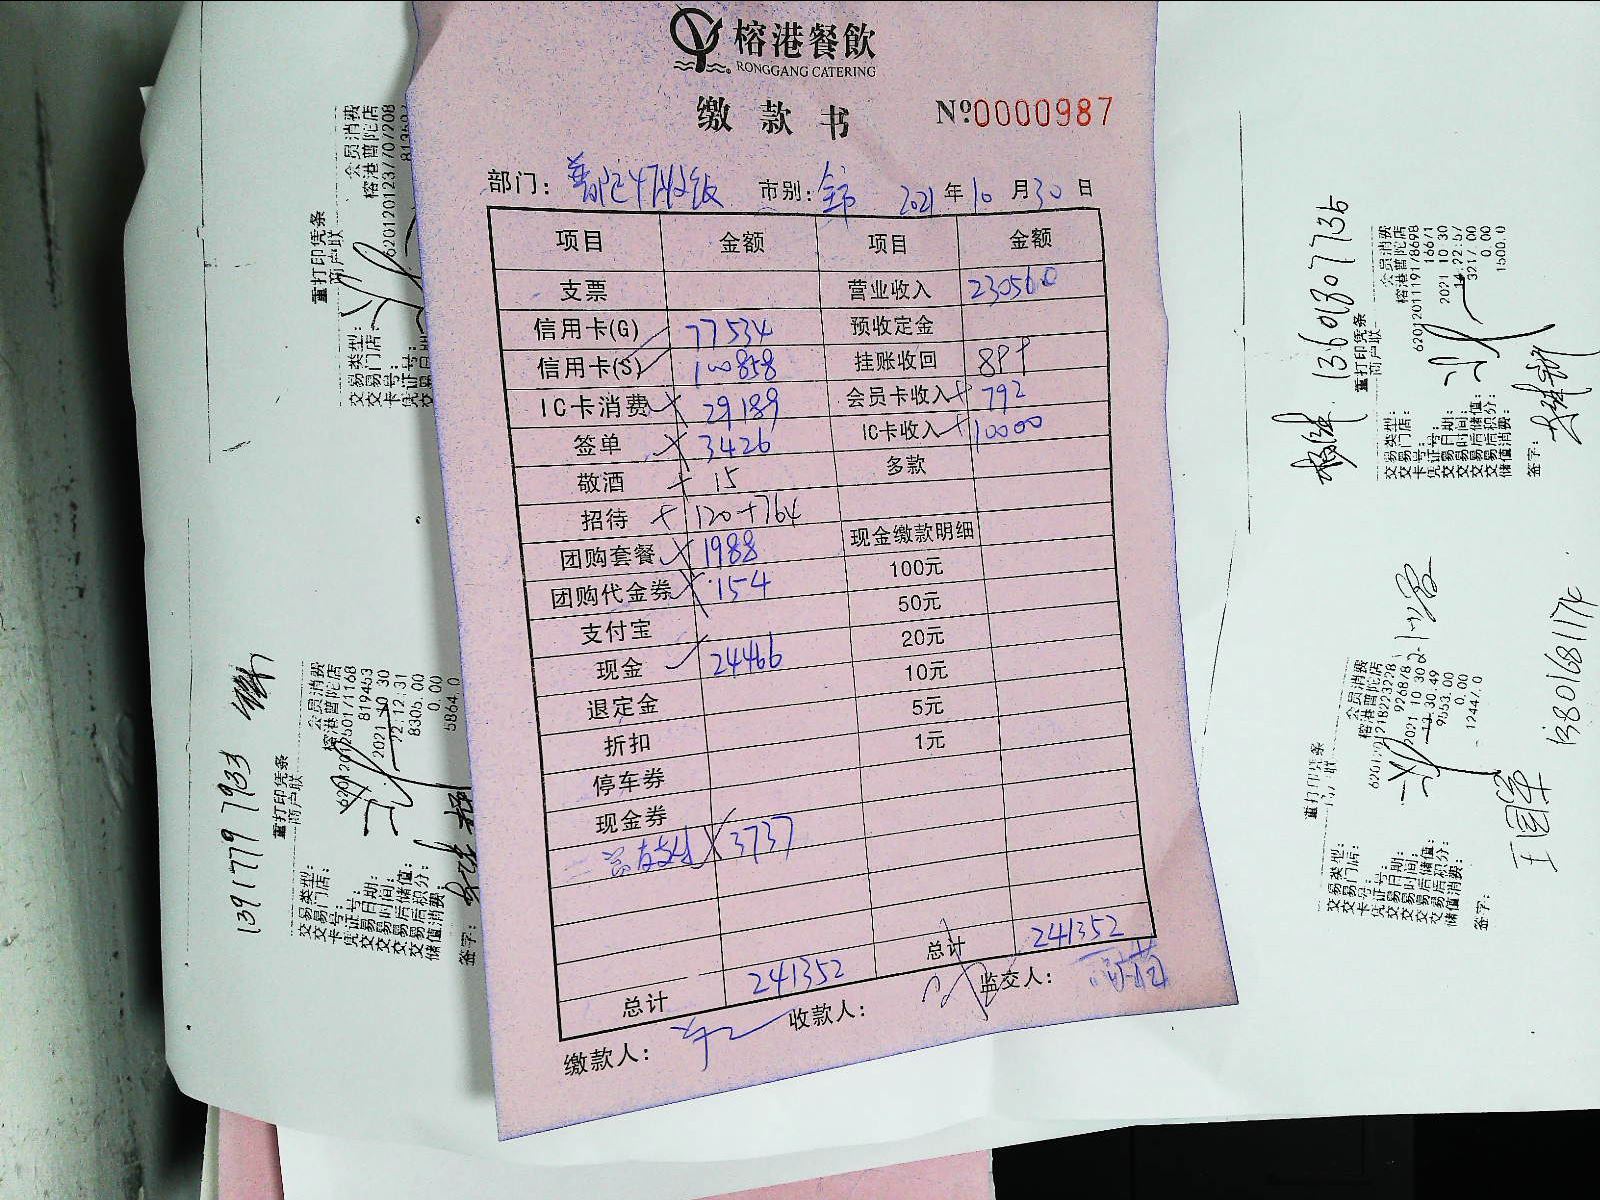 榕港餐飲
RONGGANG CATERING
缴款书 №0000987
部门： 市别： 2021年10月30日
项目 金额 项目 金额
支票 营业收入 230560
信用卡(G) 77534 预收定金
信用卡(S) 100858 挂账收回 899
IC卡消费 29189 会员卡收入 792
签单 3426 IC卡收入 10000
敬酒 15 多款
招待 120+764
团购套餐 1988 现金缴款明细
团购代金券 154 100元
支付宝 50元
现金 24466 20元
退定金 10元
折扣 5元
停车券 1元
现金券
3737
总计 241352 总计 241352
缴款人： 收款人： 监交人：
重打印凭条
商户联
交易类型： 会员消费
交易门店： 榕港普陀店
卡号： 62012012370/0/208
凭证号：
13917797933
重打印凭条
商户联
交易类型： 会员消费
交易门店： 榕港普陀店
卡号：
凭证号： 819453
交易日期： 2021 10 30
交易时间： 22.12.31
交易后储值： 8305.00
交易后积分： 0.00
储值消费： 5864.0
签字：
13601307735
重打印凭条
商户联
交易类型： 会员消费
交易门店： 榕港普陀店
卡号： 6201201119178698
凭证号： 16671
交易日期： 2021 10 30
交易时间：
交易后储值： 3217.00
交易后积分： 0.00
储值消费： 1500.0
签字：
13801681174
重打印凭条
交易类型： 会员消费
交易门店： 榕港普陀店
卡号：
凭证号：
交易日期： 2021 10 30
交易时间：
交易后储值： 9553.00
交易后积分： 0.00
储值消费： 12447.0
签字：